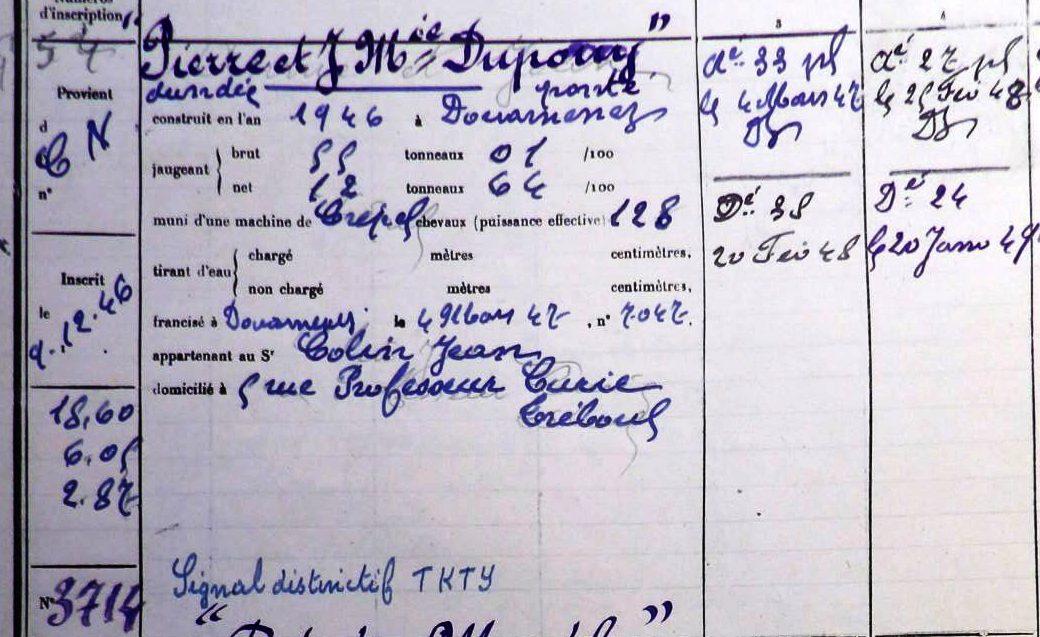 d'inscription
54
Provient
d
C N
n°
Inscrit
le
9.12.46
18,60
6.05
2.87
N° 3714
Pierre et J Mcie Dupouy "
dundée ponté
construit en l'an 1946 à Douarnenez
jaugeant
brut 55 tonneaux 01 /100
net 12 tonneaux 64 /100
muni d'une machine de Crépel chevaux (puissance effective) 128
tirant d'eau
chargé mètres centimètres,
non chargé mètres centimètres,
francisé à Douarnenez le 4 Mars 47, n° 7047.
appartenant au Sr Colin Jean
domicilié à 5 rue Professeur Curie
Tréboul
Signal distinctif TKTY
"
"
3
Dé 33 pl
le 4 Mars 47
DZ
Dé 38
20 Fév 48
4
Dé 27 pl
le 25 Fév 48
DZ
Dé 24
le 20 Janv 49